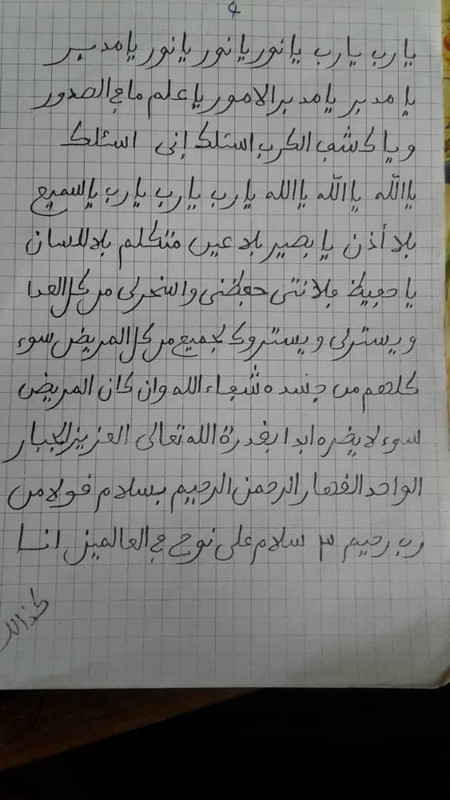 ٩
يا رب يا رب يا نور يا نور يا نور يا مدبر
يا مدبر يا مدبر الامور يا علم ما في الصدور
و يا كشف الكرب اسئلك إنى اسئلك
يا الله يا الله يا الله يا رب يا رب يا رب يا سميع
بلا أذن يا بصير بلا عين متكلم بلا للسان
يا حفيظ فلانتى حفظنى وانتحرلى من كل العدا
و يسترلى و يستروك لجميع من كل المريض سوء
كلهم من جنسده شفاء الله وان كان المريض
سوء لا يضره ابدا بقدرة الله تعالى العزيز الجبار
الواحد القهار الرحمن الرحيم بسلام قولا من
رب رحيم ٣ سلام على نوح في العالمين انا
كذالك